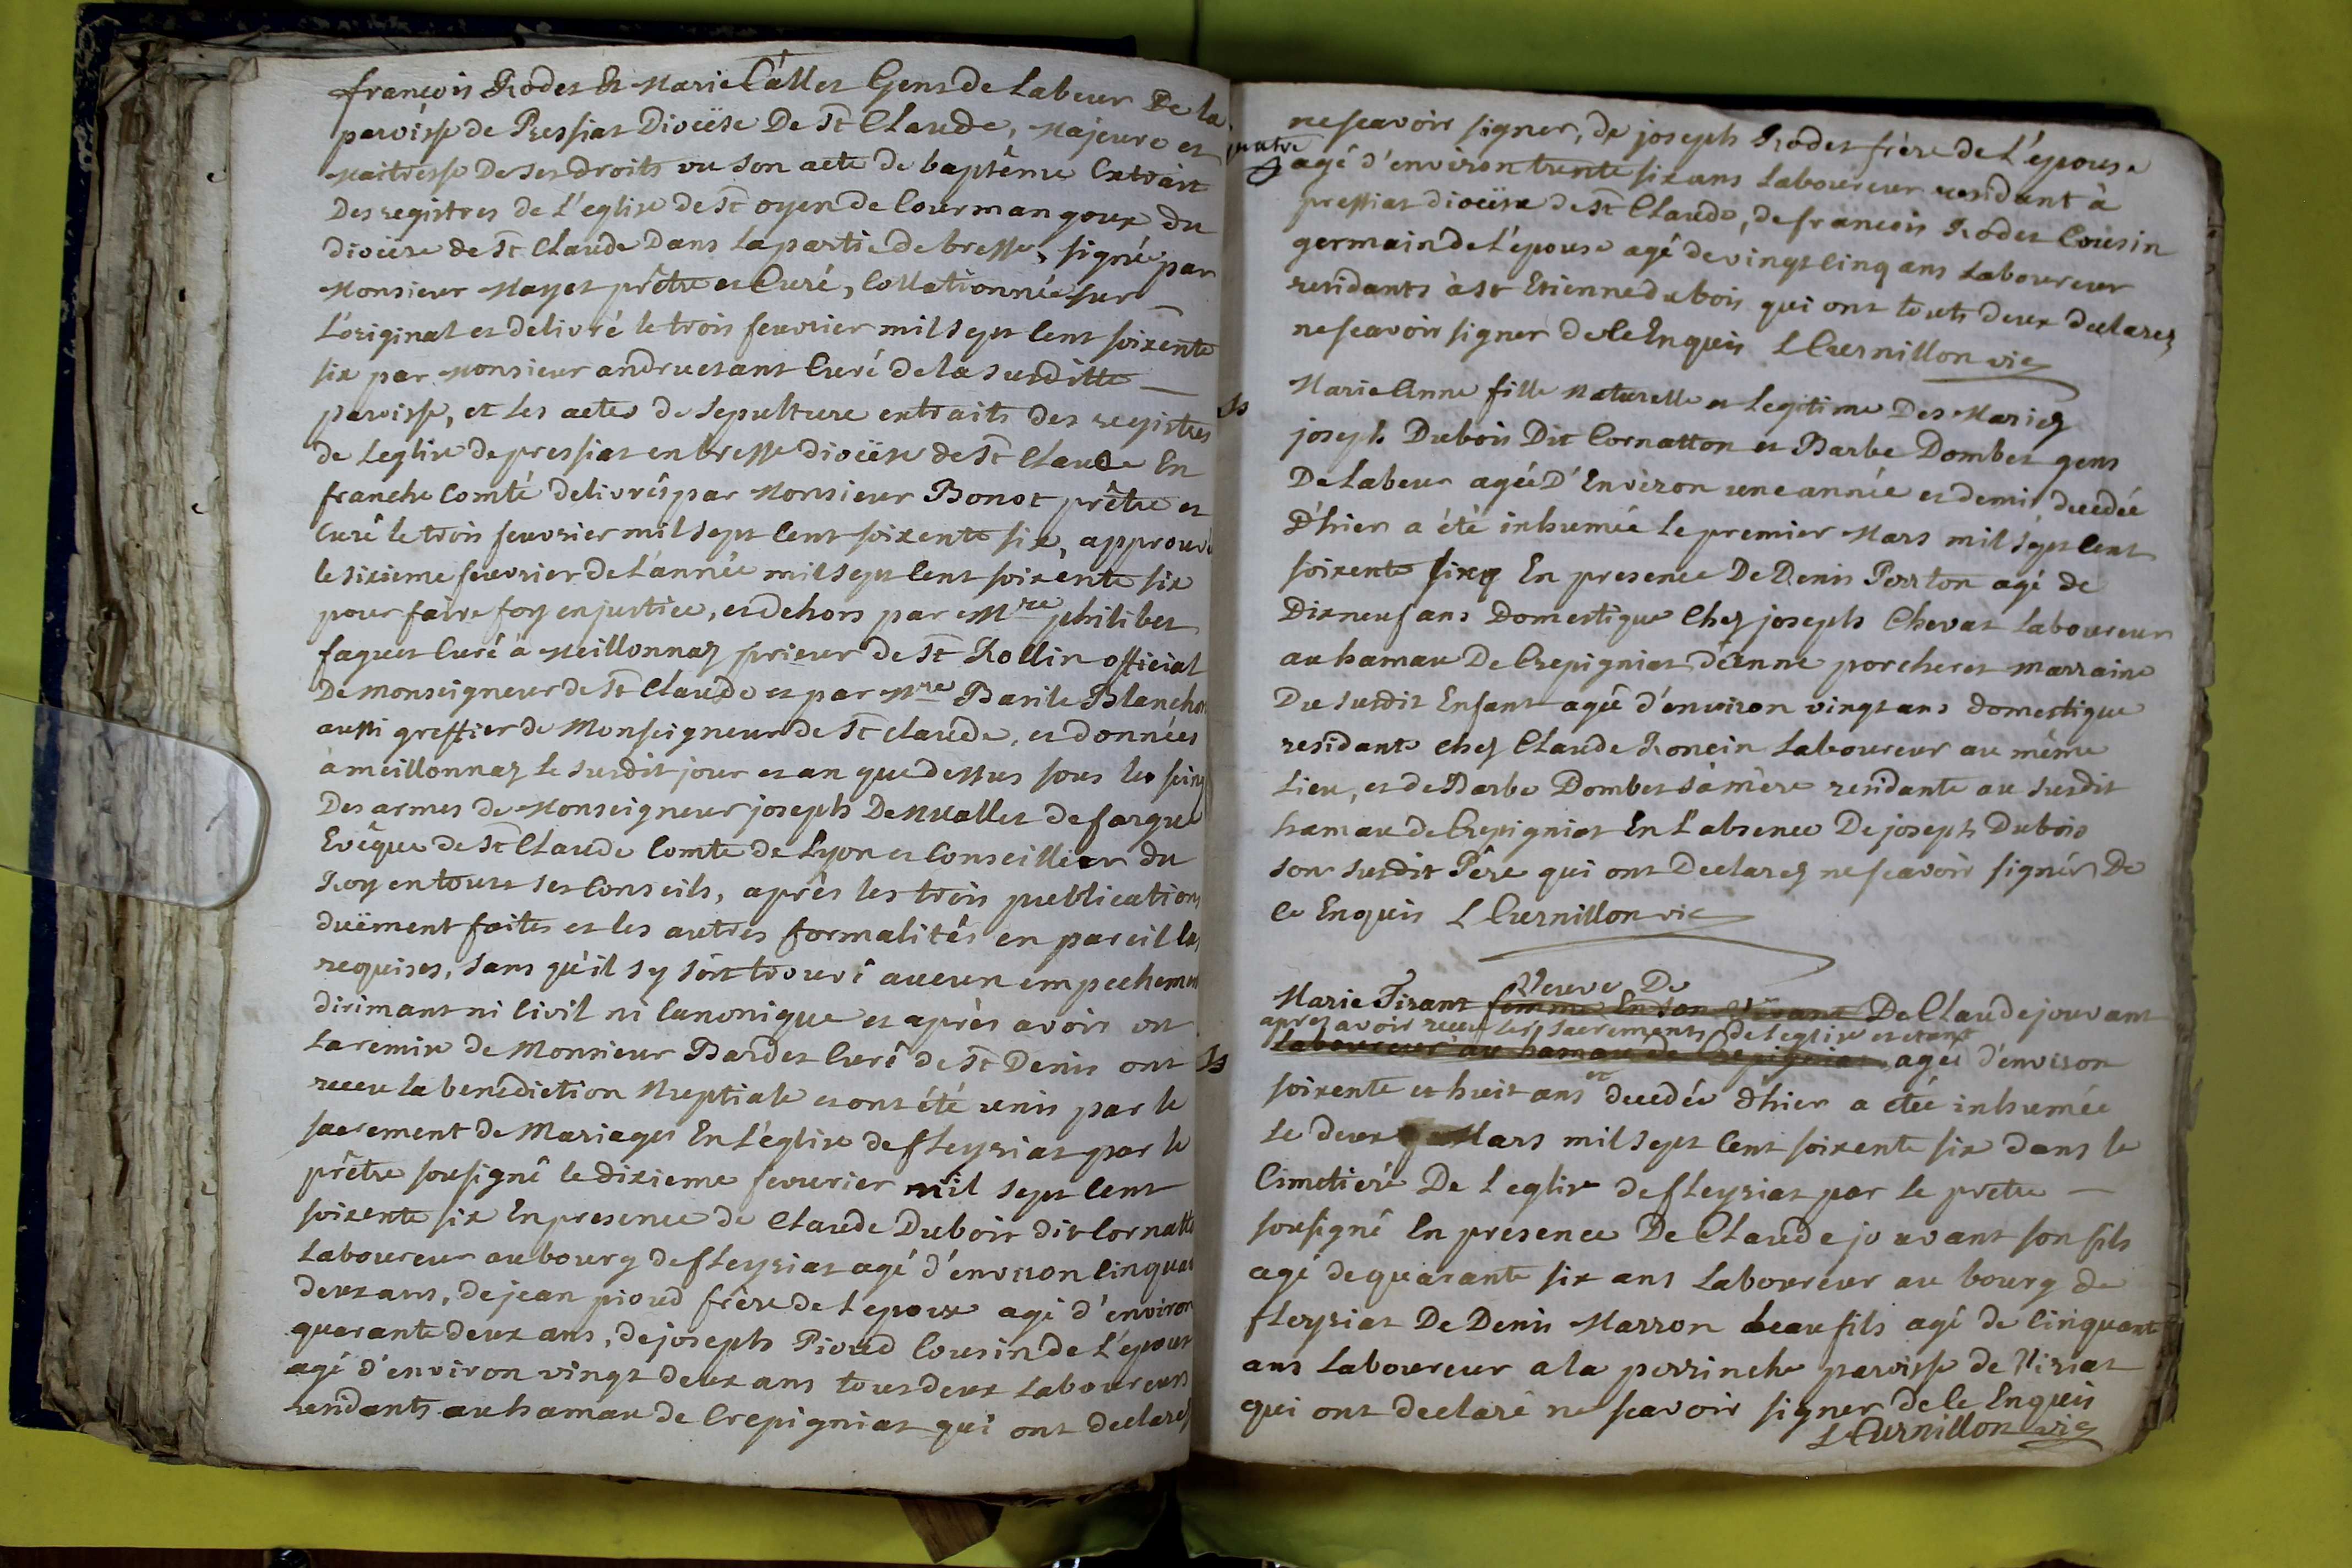 françois Rodet Et Marie Callet Gens de Labeur De la
paroisse de Pressiat Diocèse De St Claude, Majeure et
Maitresse De ses droits vu son acte de baptême Extrait
Des registres de L'eglise de St oyen de Courmangoux du
diocèse de St Claude Dans la partie de bresse, signé par
Monsieur Mayet prêtre et Curé, Collationnée sur
L'original et delivré le trois fevrier mil sept Cent soixente
six par Monsieur andruetant Curé de la susditte
paroisse, et Les actes de sepulture extraits des registres
de Leglise de pressiat en bresse diocèse de St Claude En
franche Comté delivrés par Monsieur Bonot prêtre et
Curé le trois fevrier mil sept Cent soixente six, approuvé
le sixieme fevrier de L'année mil sept Cent soixente six
pour faire foy en justice, et dehors par Mre philibet
faguet Curé à Meillonnaz prieur de St Rollin official
De monseigneur de St Claude et par Mre Basile Blanchot
aussi greffier de Monseigneur de St claude, et données
à meillonnaz le susdit jour et an que dessus sous les seing
Des armes de Monseigneur joseph De Mallet de fargue
Evêque de St Claude Comte de Lyon et Conseillier du
Roy en touts ses Conseils, après les trois publications
duëment faites et les autres formalités en pareil cas
requises, sans qu'il s'y soit trouvé aucun empechement
dirimant ni Civil ni Canonique et après avoir vu
La remise de Monsieur Bardet Curé de St Denis ont
receu la benédiction Nuptiale et ont été unis par le
sacrement de Mariages En L'église de fleyriat par le
prêtre sousigné le dixieme fevrier mil sept Cent
soixente six En presence de Claude Dubois dit Cornatto
Laboureur au bourg de fleyriat agé d'environ Cinquan
deux ans, de jean pioud frère de Lepoux agé d'environ
quarante deux ans, de joseph Pioud Cousin de L'epoux
agé d'environ vingt deux ans tous deux Laboureurs
residants au hamau de Crepigniat qui ont declarez
ne scavoir signer, de joseph Rodet frère de L'épouse
quatre
agé d'environ trente six ans Laboureur residant à
pressiat diocèse de St Claude, de françois Rodet Cousin
germain de L'épouse agé de vingt Cinq ans Laboureur
residants à St Etienne du bois qui ont touts deux declarez
ne scavoir signer de Ce Enquis L Curnillon vic
Marie Anne fille Naturelle et Legitime Des Mariez
joseph Dubois Dit Cornatton et Barbe Dombet gens
De Labeur agée D'Environ une année et demis decedée
D'hier a été inhumée Le premier Mars mil sept Cent
soixente six En presence De Denis Perrton agé de
Dixneuf ans Domestique Chez joseph Chevat Laboureur
au hamau De Crepigniat d'anne porcheret Marraine
Du susdit Enfant agée d'environ vingt ans domestique
residante chez Claude Roncin Laboureur au même
Lieu, et de Barbe Dombet sa mère residante au susdit
hamau de Crepigniat En L'absence De joseph Dubois
son susdit Père qui ont Declarez ne scavoir signer De
Ce Enquis L Curnillon vic
Veuve De
Marie Tirant femme En son vivant De Claude jouvant
apres avoir receu Les sacrements de Leglise et etant
Laboureur au hamau de Crepigniat agée d'environ
soixente et huit ans et decedée d'hier a étée inhumée
Le deux Mars mil sept Cent soixente six dans le
Cimetière De Leglise de fleyriat par Le prêtre
sousigné En presence De Claude jouvant son fils
agé de quarante six ans Laboureur au bourg de
fleyriat De Denis Marron beau fils agé de Cinquante
ans Laboureur a la perrinche paroisse de Viriat
qui ont declaré ne scavoir signer de Ce Enquis
L Curnillon vic